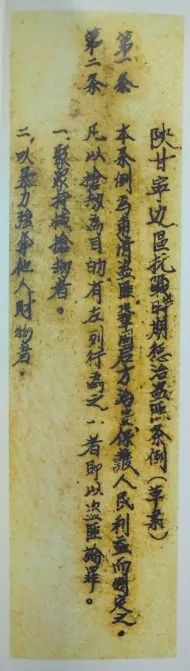 陕甘寧边區抗戰時期惩治盗匪条例（草案）
第一条 本条例为肃清盗匪鞏固后方治安保護人民利益而制定之。
第二条 凡以搶劫為目的有左列行為之一者即以盗匪論罪。
一、聚众持械搶劫者。
二、以暴力強奪他人財物者。